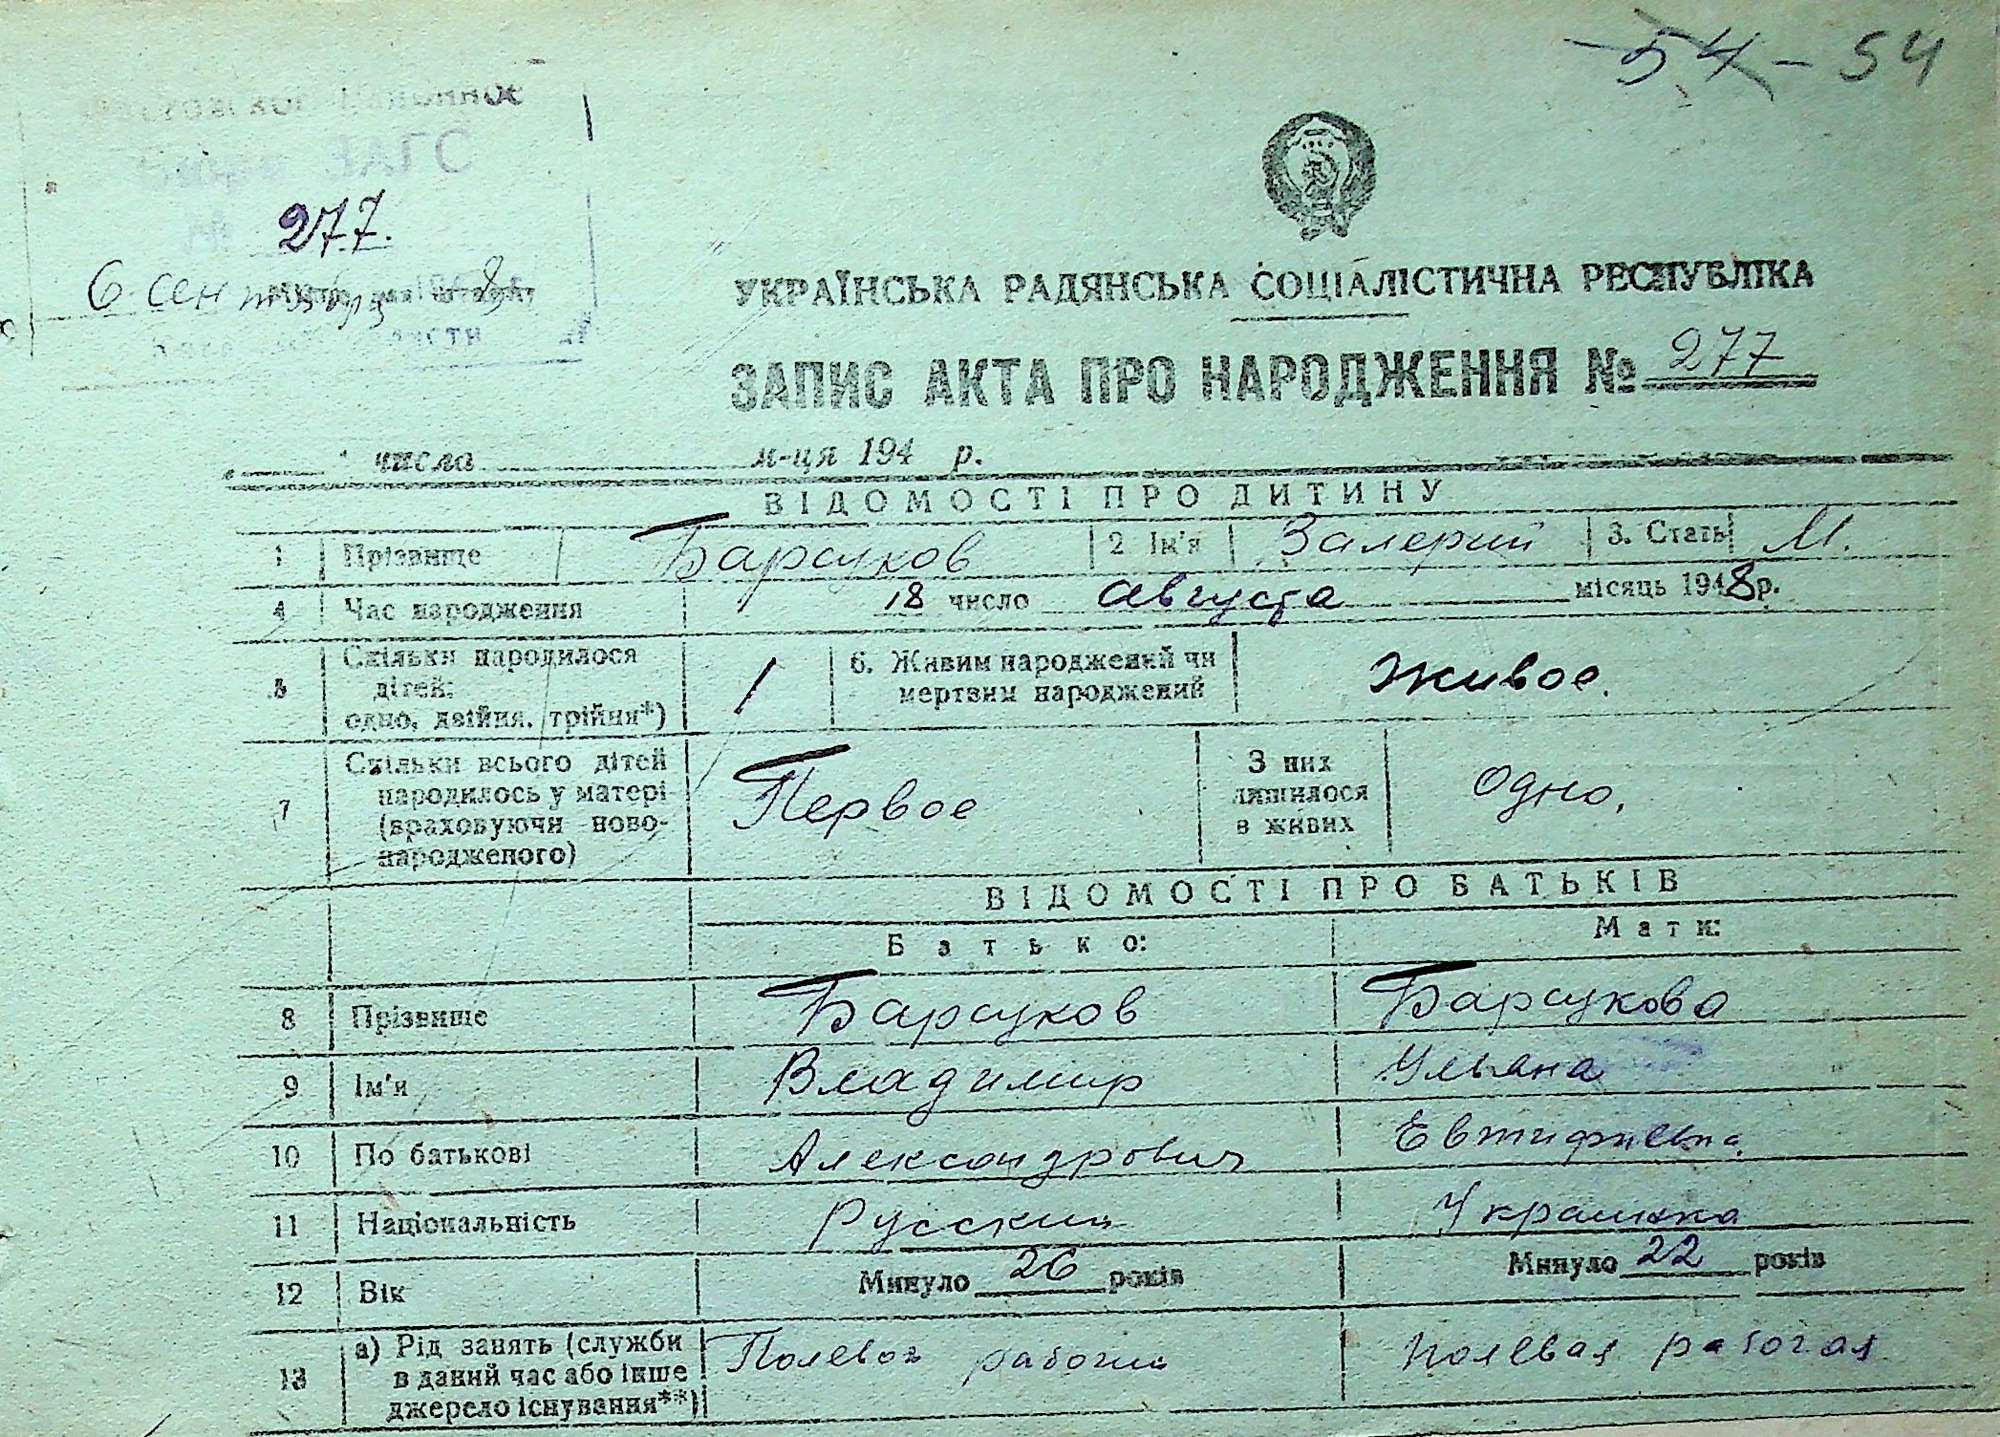 54 - 54
ЗАГС
277.
6 сентября 8
УКРАЇНСЬКА РАДЯНСЬКА СОЦІАЛІСТИЧНА РЕСПУБЛІКА
ЗАПИС АКТА ПРО НАРОДЖЕННЯ № 277
числа м-ця 194 р.
ВІДОМОСТІ ПРО ДИТИНУ
1 Прізвище Барсуков 2 Ім'я Залерий 3. Стать М.
4 Час народження 18 число августа місяць 1948 р.
5 Скільки народилося дітей: одно, двійня, трійня*) 1 6. Живим народжений чи мертвим народжений Живое.
7 Скільки всього дітей народилось у матері (враховуючи новонародженого) Первое З них лишилося в живих Одно.
ВІДОМОСТІ ПРО БАТЬКІВ
Батько: Мати:
8 Прізвище Барсуков Барсукова
9 Ім'я Владимир Ульяна
10 По батькові Александрович Евтифиевна
11 Національність Русский Украинка
12 Вік Минуло 26 років Минуло 22 років
13 а) Рід занять (служби в даний час або інше джерело існування**) Полевой рабочий Полевая рабочая